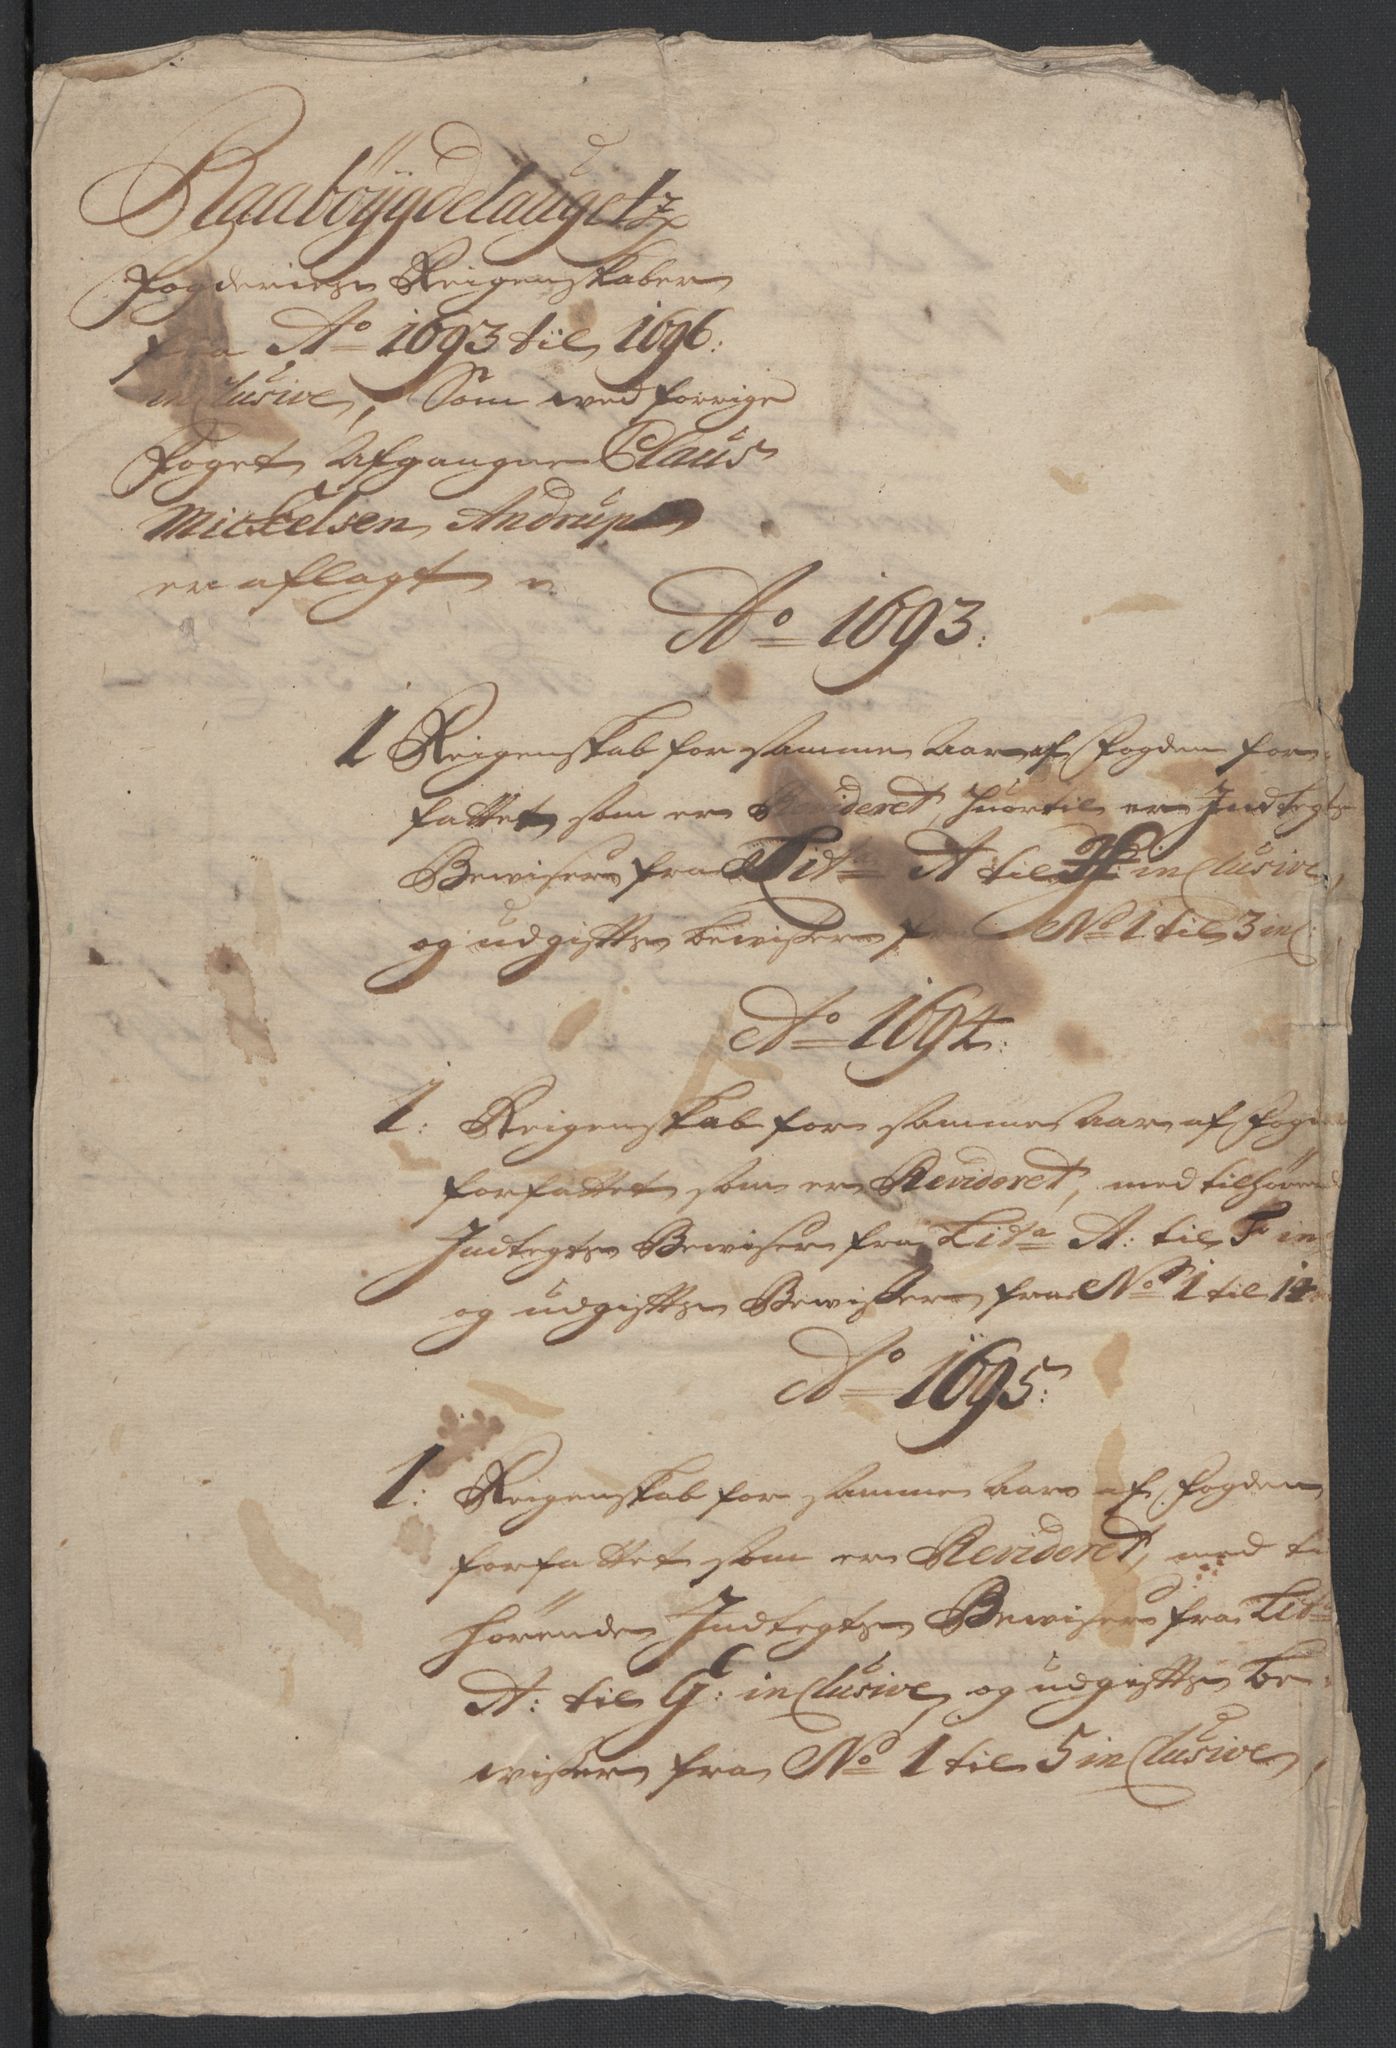 Raabøÿgdelaugetz
fogderies Reigenskaber
fra Ao 1693 til 1696:
inclusive, Som ved forrige
foget Afgangne Claus
Mickelsen Andrup
er aflagt
Ao 1693:
1 Reigenskab for samme Aar af fogden for
fattet som er Revideret, huortil er Indtegts
Bewiser fra Lita A til H: inclusive,
og udgiftts bewiser fra No 1 til 3 inc:
Ao 1694:
1: Reigenskab for samme Aar af fogden
forfattet som er Revideret, med tilhørende
Indtegts Bewiser fra Lita A: til F in
og udgiftts Bewiser fra No 1 til 14
Ao 1695:
1: Reigenskab for samme Aar af fogden
forfattet som er Revideret, med til
hørende Indtegts Bewiser fra Lita
A: til G: inclusive, og udgiftts be
wiser fra No 1 til 5 inclusive,